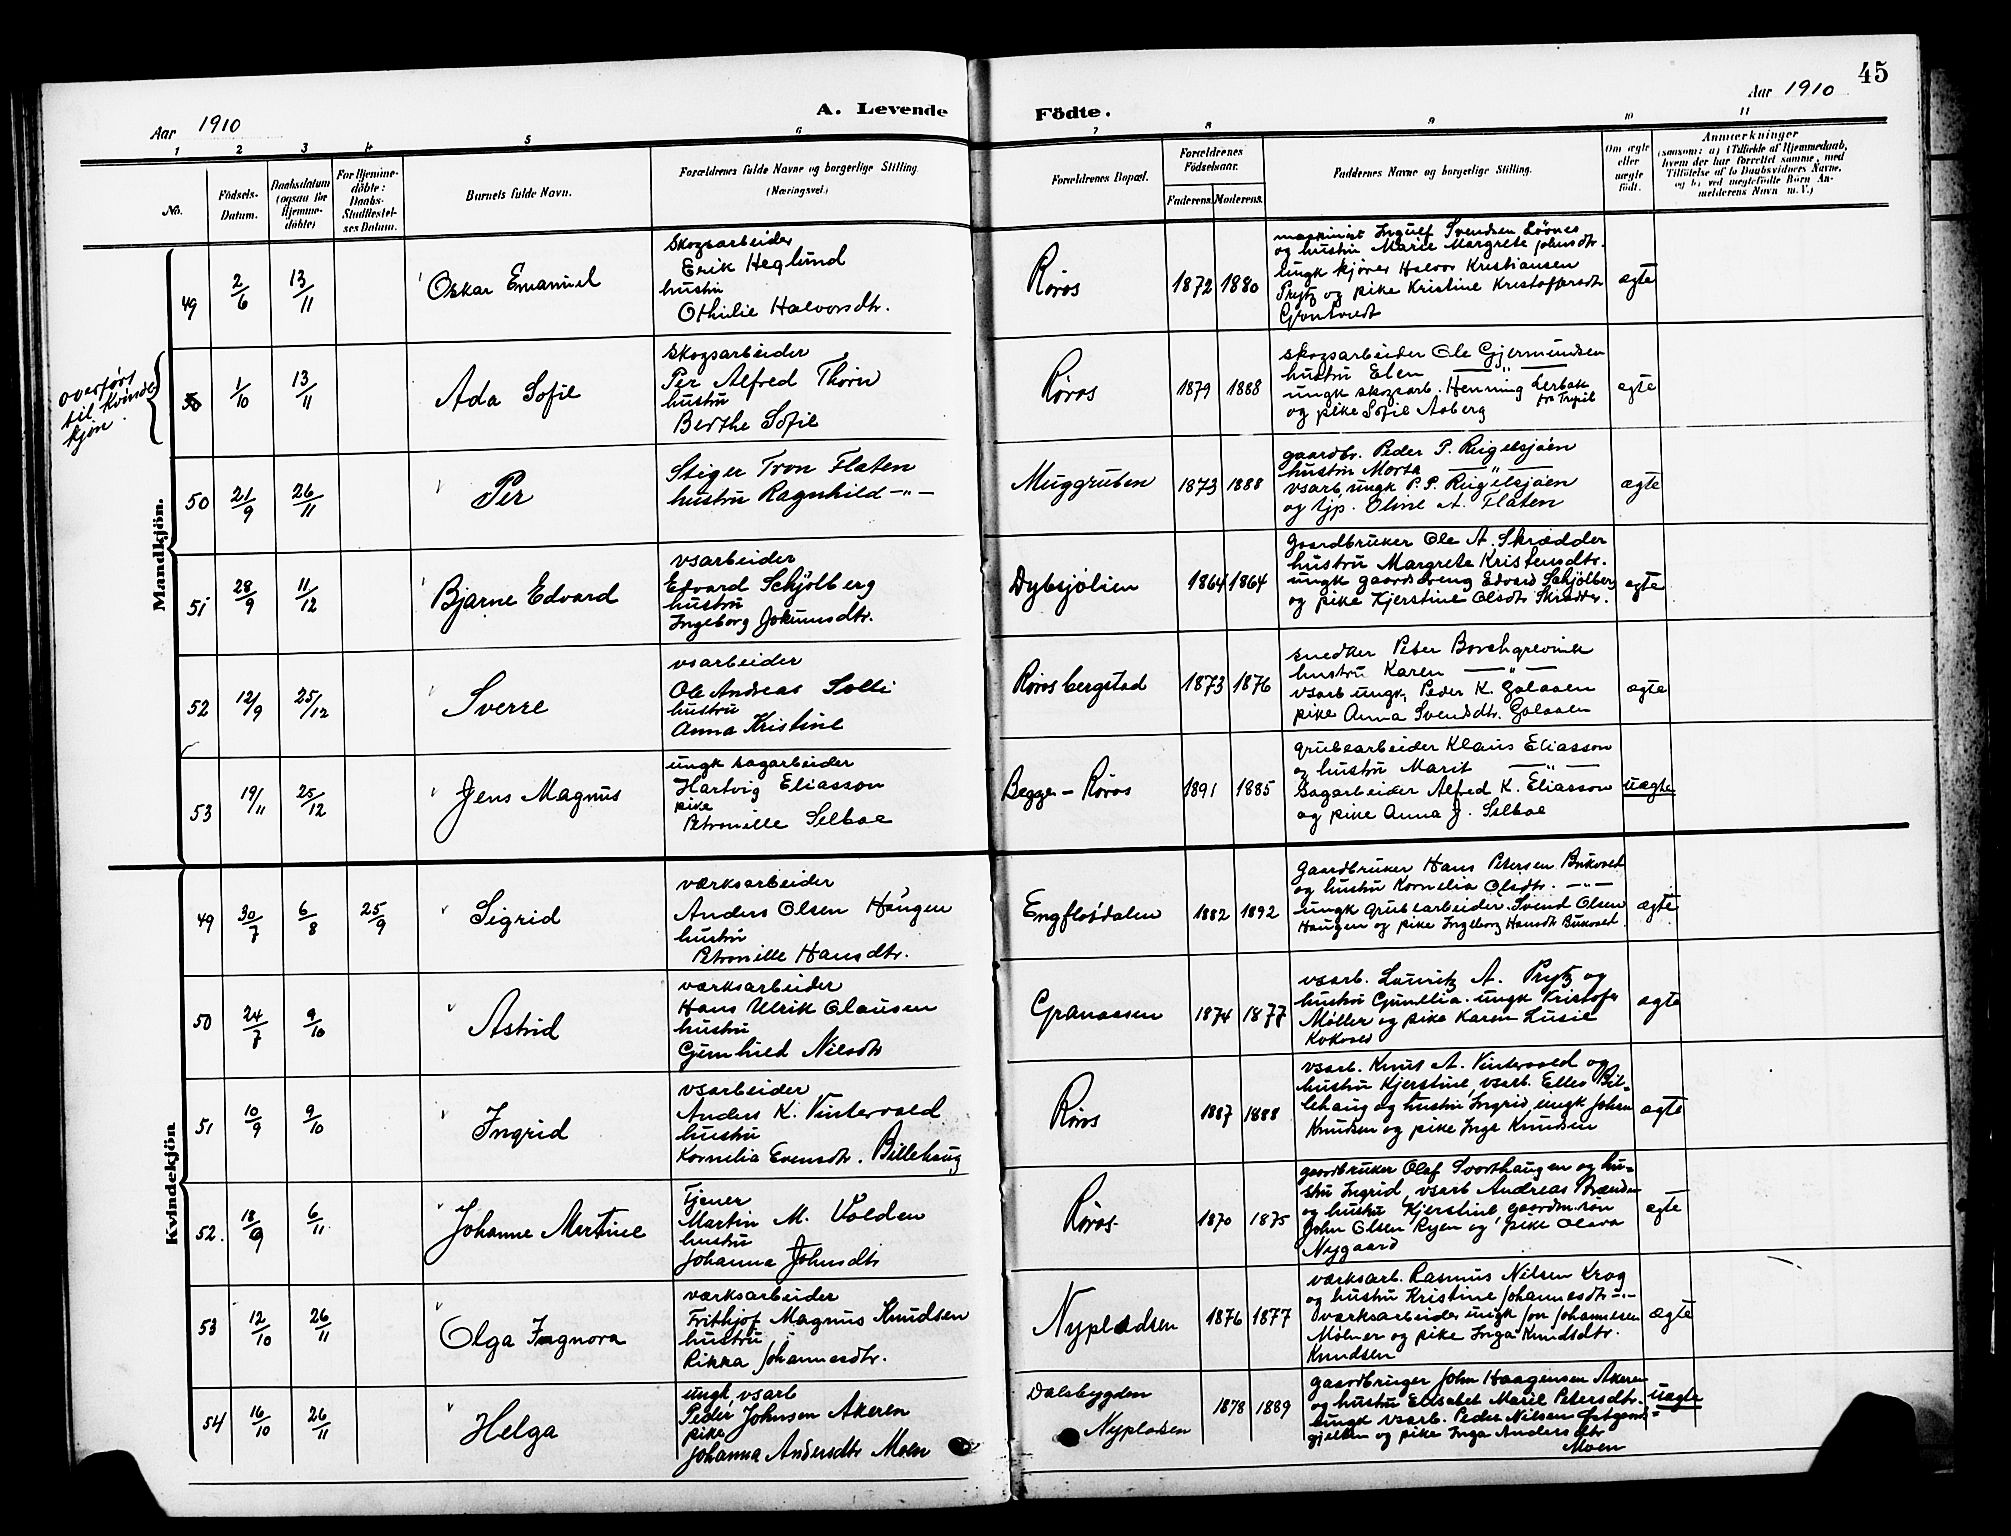 45
Aar 1910
A. Levende
Födte.
Aar 1910
1 2 3 4 5 6 7 8 9 10 11
No.
Födsels-
Datum.
Daabsdatum
(ogsaa for
Hjemme-
döbte)
For Hjemme-
döbte:
Daabs-
Stadfæstel-
ses Datum.
Barnets fulde Navn.
Forældrenes fulde Navne og borgerlige Stilling
(Næringsvei.)
Forældrenes Bopæl.
Forældrenes
Födselsaar.
Faderens. Moderens.
Faddernes Navne og borgerlige Stilling.
Om ægte
eller
uægte
födt.
Anmærkninger
(saasom: a) i Tilfælde af Hjemmedaab,
hvem der har forrettet samme, med
Tilföielse af to Daabsvidners Navne,
og b) ved uægtefödte Börn An-
melderens Navn m. V.)
Mandkjön.
49 2/6 13/11 Oskar Emanuel
skogsarbeider
Erik Heglund
hustru
Othilie Halvorsdtr.
Røros 1872 1880
maskinist Ingulf Svendsen Löones
og hustru Marie Margrete Johnsdtr.
ungk kjører Halvor Kristiansen
Prytz og pike Kristine Kristoffersdtr
Grøntvedt
ægte
overført
til Kvinde
kjøn
50 1/10 13/11 Ada Sofie
skogsarbeider
Per Alfred Thorn
hustru
Berthe Sofie
Røros 1879 1888
skogsarbeider Ole Gjermundsen
hustru Elen —"—
ungk skogsarb. Henning Lerbak
fra Trysil
og pike Sofie Aaberg
ægte
50 21/9 26/11 Per
Stiger Tron Flaten
hustru Ragnhild —"—
Muggruben 1873 1888
gaardbr. Peder P. Rugelsjøen
hustru Marta —"—
vsarb. ungk P. P. Rugelsjøen
og tjp. Oline A. Flaten
ægte
51 28/9 11/12 Bjarne Edvard
vsarbeider
Edvard Schjölberg
hustru
Ingeborg Jokumsdtr.
Dybsjølien 1864 1864
Gaardbruker Ole A. Skrædder
hustru Margrete Kristensdtr.
ungk gaardsdreng Edvard Schjölberg
og pike Kjerstine Olsdtr Skrædder.
ægte
52 12/9 25/12 Sverre
vsarbeider
Ole Andreas Solli
hustru
Anna Kristine
Røros bergstad 1873 1876
snedker Peter Borchgrevink
hustru Karen —"—
vsarb ungk. Peder K. Galaaen
pike Anna Svendsdtr. Galaaen
ægte
53 19/11 25/12 Jens Magnus
ungk sagarbeider
Hartvig Eliasson
pike
Petronille Selboe
Begge — Røros 1891 1885
grubearbeider Klaus Eliasson
og hustru Marit —"—
Sagarbeider Alfred K. Eliasson
og pike Anna J. Selboe
uægte
Kvindekjön
49 30/7 6/8 25/9 Sigrid
værksarbeider
Anders Olsen Haugen
hustru
Petronille Hansdtr.
Engflodalen 1882 1892
Gaardbruker Hans Petersen Bukvold
og hustru Kornelia Olsdtr. —"—
ungk grubearbeider Svend Olsen
Haugen og pike Ingeborg Hansdtr Bukvold.
ægte
50 24/7 9/10 Astrid
værksarbeider
Hans Ulrik Clausen
hustru
Gunhild Nilsdtr
Granaasen 1874 1877
vsarb. Lauritz A. Prytz og
hustru Gunelia. ungk Kristofer
Møller og pike Karen Lusie
Kokvold
ægte
51 10/9 9/10 Ingrid
vsarbeider
Anders K. Vintervold
hustru
Kornelia Evensdtr. Billehaug
Røros 1887 1888
vsarb. Knut A. Vintervold og
hustru Kjerstine, vsarb. Elles Bil-
lehaug og hustru Ingrid, ungk Johan
Knudsen og pike Inga Knudsen
ægte
52. 18/9 6/11 Johanne Martine
Tjener
Martin M. Volden
hustru
Johanna Johnsdtr
Røros 1870 1875
gaardbruker Olaf Svorthaugen og hu-
stru Ingrid, vsarb Andreas Brænden
og hustru Kjerstine gaardm. søn
John Olsen Ryen og pike Olava
Nygaard
ægte
53 12/10 26/11 Olga Ingnora
værksarbeider
Frithjof Magnus Knudsen
hustru
Rikka Johannesdtr.
Nyplodsen 1876 1877
værksarb. Rasmus Nilsen Krog
og hustru Kristine Johannesdtr —"—
værksarbeider ungk Jon Johannesen
Mølner og pike Inga Knudsdtr.
Knudsen
ægte
54 16/10 26/11 Helga
ungk, vsarb
Peder Johnsen Akeren
pike
Johanna Andersdtr Moen
Dalsbygden
Nyplodsen
1878 1889
gaardbruger John Haagensen Akeren
og hustru Elisabet Marie Petersdtr.
ungk vsarb. Peder Nilsen
og pike Inga Andersdtr
Moen
uægte